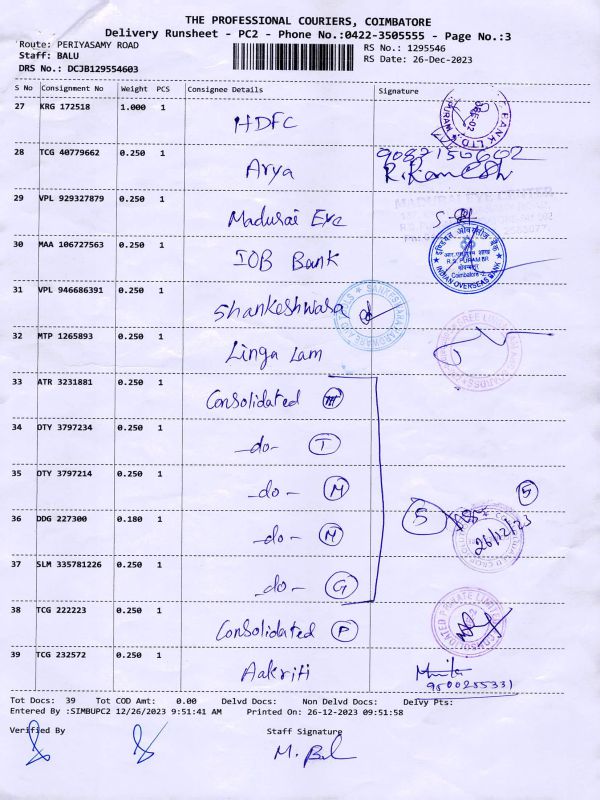 THE PROFESSIONAL COURIERS, COIMBATORE
Delivery Runsheet - PC2 - Phone No.:0422-3505555 - Page No.:3
Route: PERIYASAMY ROAD
RS No.: 1295546
Staff: BALU
RS Date: 26-Dec-2023
DRS No.: DCJB129554603
S No Consignment No Weight PCS Consignee Details Signature
27 KRG 172518 1.000 1 HDFC
28 TCG 40779662 0.250 1 Arya R.Ramesh
29 VPL 929327879 0.250 1 Madurai Eye
30 MAA 106727563 0.250 1 IOB Bank
INDIAN OVERSEAS BANK
R.S. PURAM BR
Coimbatore-2
31 VPL 946686391 0.250 1 Shankeshwara
32 MTP 1265893 0.250 1 Linga Lam
33 ATR 3231881 0.250 1 Consolidated
34 DTY 3797234 0.250 1 -do- T
35 DTY 3797214 0.250 1 -do- M
5 5
36 DDG 227300 0.180 1 -do- M
26/12/23
37 SLM 335781226 0.250 1 -do- G
38 TCG 222223 0.250 1 Consolidated P
CONSOLIDATED PRIVATE LIMITED
39 TCG 232572 0.250 1 Aakriti
Tot Docs: 39 Tot COD Amt: 0.00 Delvd Docs: Non Delvd Docs: Delvy Pts:
Entered By :SIMBUPC2 12/26/2023 9:51:41 AM Printed On: 26-12-2023 09:51:58
Verified By Staff Signature